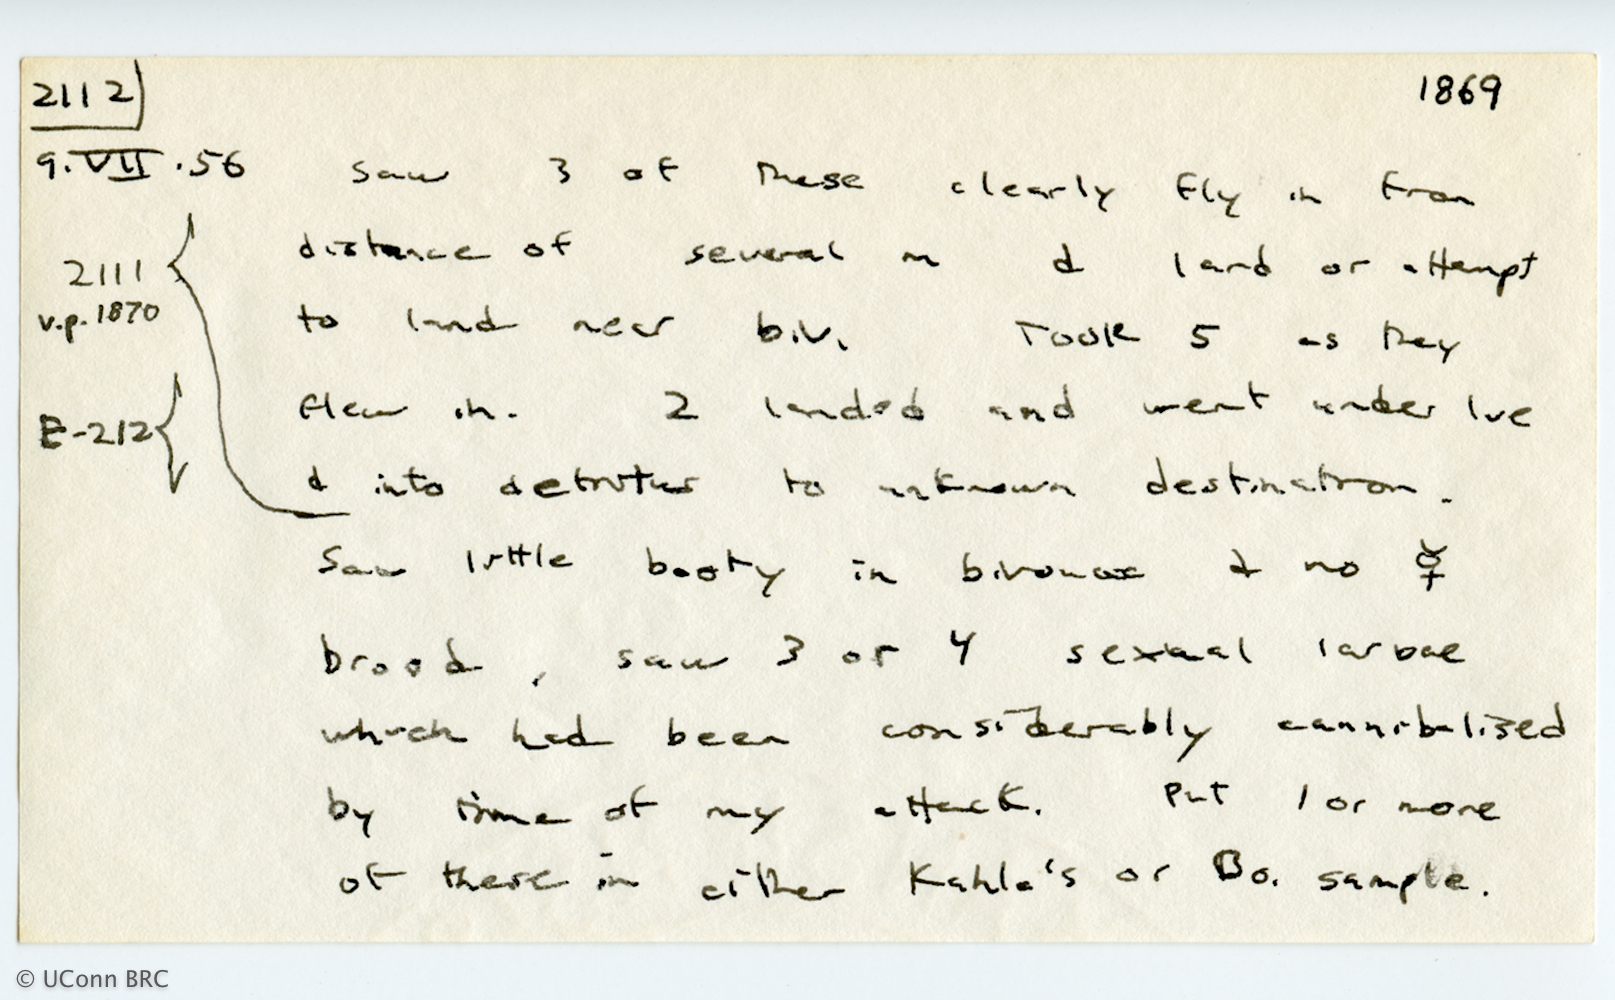 2112
1869
9.VII.56 saw 3 of these clearly fly in from
distance of several m & land or attempt
2111
v.p. 1870
to land near biv. Took 5 as they
flew in. 2 landed and went under lve
E-212
& into detritus to unknown destination.
Saw little booty in bivouac & no ☿
brood, saw 3 or 4 sexual larvae
which had been considerably cannibalized
by time of my attack. Put 1 or more
of these in either Kahla's or Bo. sample.
© UConn BRC